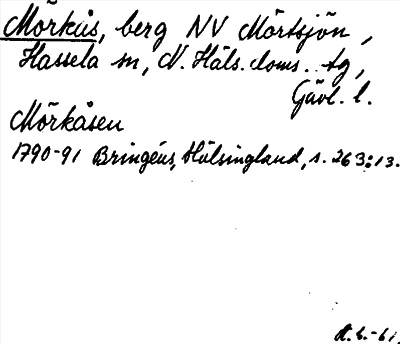 Mörkås, berg NV Mörtsjön,
Hassela sn, N. Häls. doms. tg,
Gävl. l.
Mörkåsen
1790-91 Bringéus, Hälsingland, s. 263:13.